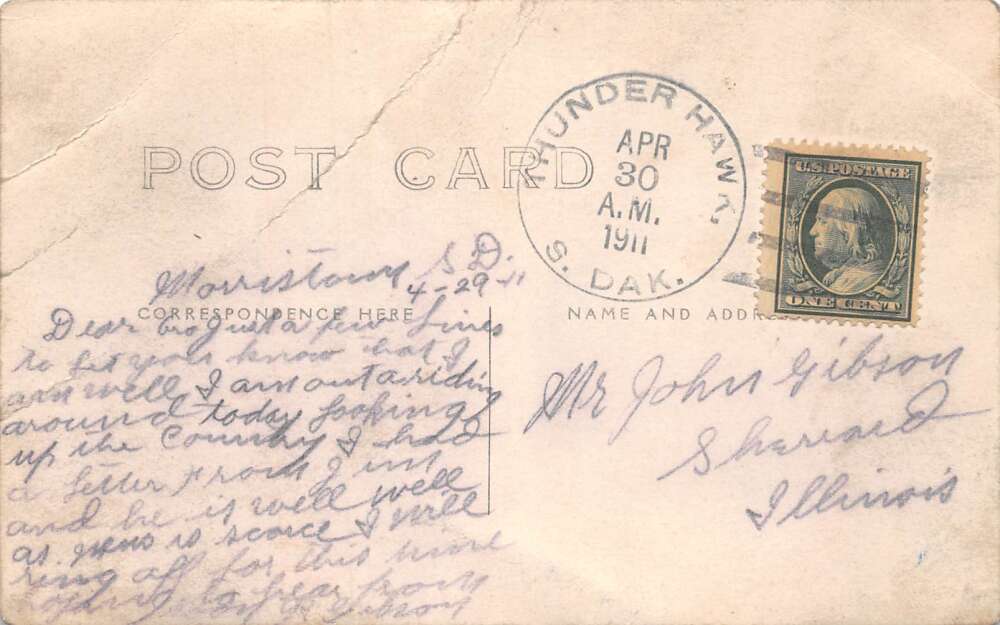 POST CARD
THUNDER HAWK.
APR
30
A.M.
1911
S. DAK.
U.S. POSTAGE
ONE CENT
Morristown S D.
4-29-11
CORRESPONDENCE HERE
NAME AND ADDR
Dear bro Just a few Lines
to Let you know that I
am well I am out a riding
around today Looking
up the Country I had
a Letter From Jim
and he is well well
as news is scorce I will
ring off for this time
hoping to hear from
Gibson
Mr John Gibson
Sherrard
Illinois